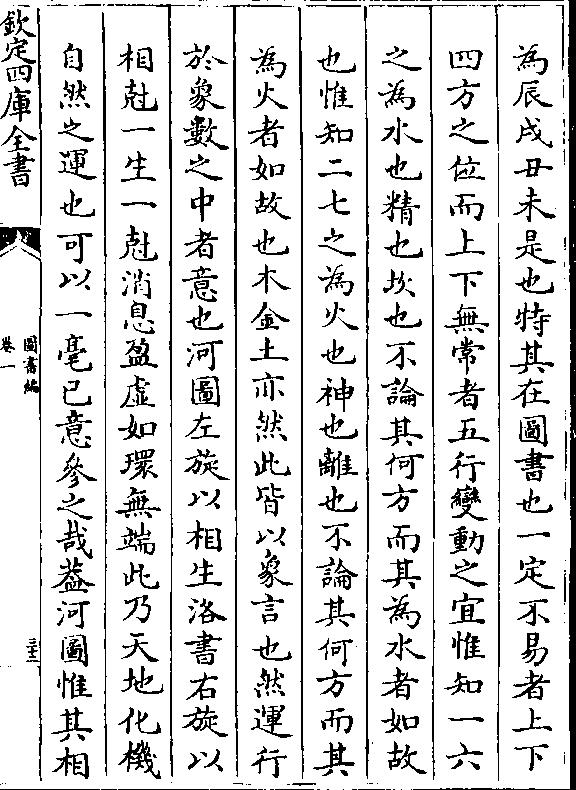 為辰戌丑未是也特其在圖書也一定不易者上下
四方之位而上下無常者五行變動之宜惟知一六
之為水也精也坎也不論其何方而其為水者如故
也惟知二七之為火也神也離也不論其何方而其
為火者如故也木金土亦然此皆以象言也然運行
於象數之中者意也河圖左旋以相生洛書右旋以
相尅一生一尅消息盈虛如環無端此乃天地化機
自然之運也可以一毫已意參之哉葢河圖惟其相
欽定四庫全書
圖書編
卷一
三十三